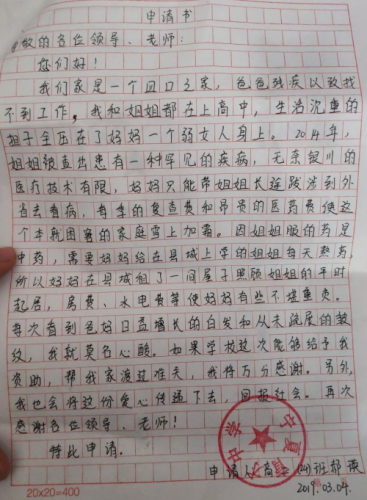 申请书
敬的各位领导、老师:
您们好!
我们家是一个四口之家,爸爸残疾以致找
不到工作。我和姐姐都在上高中,生活沉重的
担子全压在了妈妈一个弱女人身上。2014年,
姐姐被查出患有一种罕见的疾病,无奈银川的
医疗技术有限,妈妈只能带姐姐长途跋涉到外
省去看病。每季的复查费和昂贵的医药费使这
个本就困窘的家庭雪上加霜。因姐姐服的药是
中药,需要妈妈给在县城上学的姐姐每天熬药,
所以妈妈在县城租了一间屋子照顾姐姐的平时
起居,房费、水电费等使妈妈有些不堪重负。
每次看到爸妈日益增长的白发和从未疏展的皱
纹,我就莫名心酸。如果学校这次能够给予我
资助,帮我家渡过难关,我将万分感谢。另外,
我也会将这份爱心传递下去,回报社会。再次
感谢各位领导、老师!
特此申请。
申请人:高二(14)班郝
2019.03.04.
20×20=400
宁夏
中学